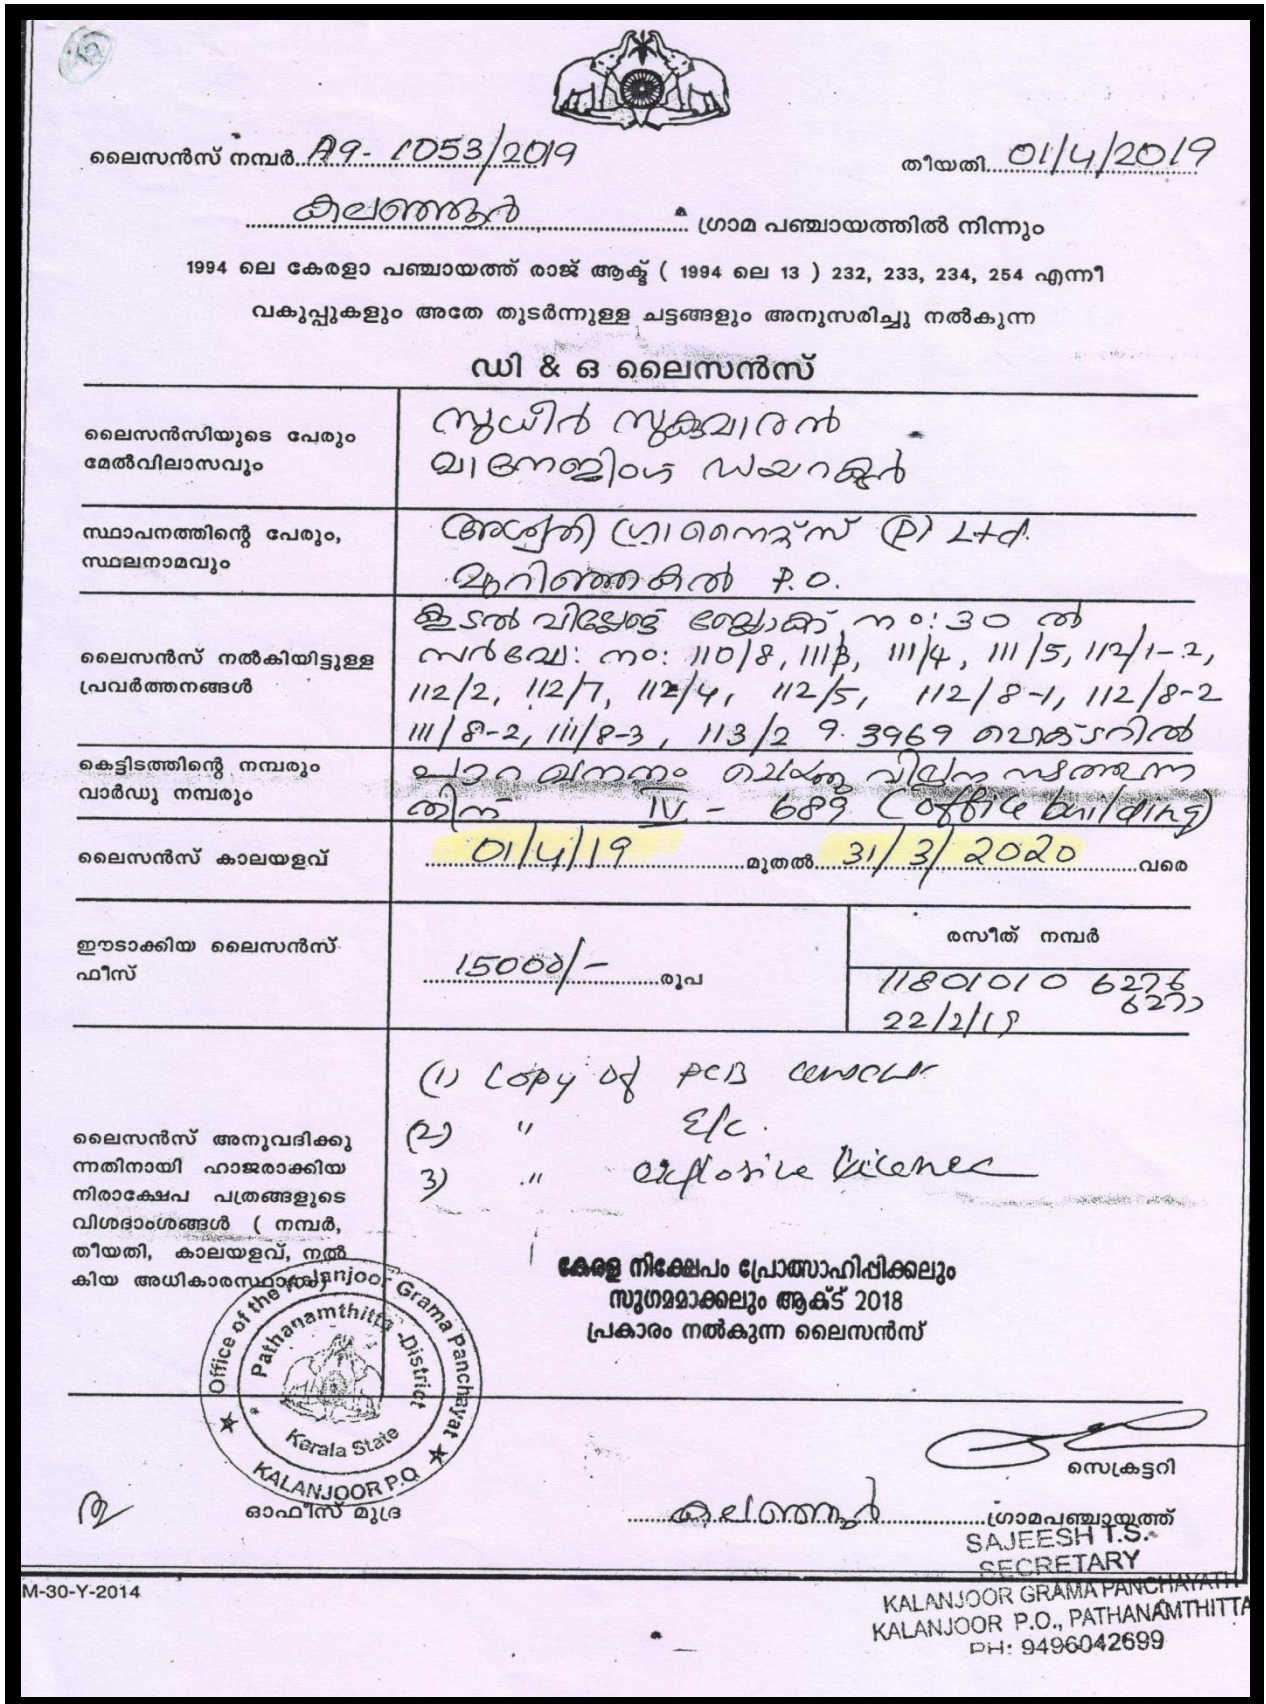 ലൈസൻസ് നമ്പർ A9-1053/2019
തീയതി 01/4/2019
കലഞ്ഞൂർ ഗ്രാമ പഞ്ചായത്തിൽ നിന്നും
1994 ലെ കേരളാ പഞ്ചായത്ത് രാജ് ആക്ട് ( 1994 ലെ 13 ) 232, 233, 234, 254 എന്നീ
വകുപ്പുകളും അതേ തുടർന്നുള്ള ചട്ടങ്ങളും അനുസരിച്ചു നൽകുന്ന
ഡി & ഒ ലൈസൻസ്
ലൈസൻസിയുടെ പേരും
മേൽവിലാസവും
സുധീർ സുകുമാരൻ
മാനേജിംഗ് ഡയറക്ടർ
സ്ഥാപനത്തിന്റെ പേരും,
സ്ഥലനാമവും
അശ്വതി ഗ്രാനൈറ്റ്സ് (P) Ltd.
മുറിഞ്ഞകൽ P.O.
ലൈസൻസ് നൽകിയിട്ടുള്ള
പ്രവർത്തനങ്ങൾ
കൂടൽ വില്ലേജ് ബ്ലോക്ക് നം: 30 ൽ
സർവേ: നം: 110/8, 111/4, 111/5, 112/1-2,
112/2, 112/7, 112/4, 112/5, 112/8-1, 112/8-2
111/8-2, 111/8-3, 113/2 9.3969 ഹെക്ടറിൽ
കെട്ടിടത്തിന്റെ നമ്പരും
വാർഡു നമ്പരും
പാറ ഖനനം ചെയ്തു വില്പന നടത്തുന്ന
തിന് IV - 689 (office building)
ലൈസൻസ് കാലയളവ്
01/4/19 മുതൽ 31/3/2020 വരെ
ഈടാക്കിയ ലൈസൻസ്
ഫീസ്
15000/- രൂപ
രസീത് നമ്പർ
11801010 6276
6277
22/2/19
ലൈസൻസ് അനുവദിക്കു
ന്നതിനായി ഹാജരാക്കിയ
നിരാക്ഷേപ പത്രങ്ങളുടെ
വിശദാംശങ്ങൾ ( നമ്പർ,
തീയതി, കാലയളവ്, നൽ
കിയ അധികാരസ്ഥാനം)
(1) Copy of PCB consent
(2) " E/c.
3) " explosive licence
കേരള നിക്ഷേപം പ്രോത്സാഹിപ്പിക്കലും
സുഗമമാക്കലും ആക്ട് 2018
പ്രകാരം നൽകുന്ന ലൈസൻസ്
Office of the Kalanjoor Grama Panchayat
Pathanamthitta -District
Kerala State
KALANJOOR P.O
ഓഫീസ് മുദ്ര
സെക്രട്ടറി
കലഞ്ഞൂർ ഗ്രാമപഞ്ചായത്ത്
SAJEESH T.S.
SECRETARY
KALANJOOR GRAMA PANCHAYATH
KALANJOOR P.O., PATHANAMTHITTA
PH: 9496042699
M-30-Y-2014